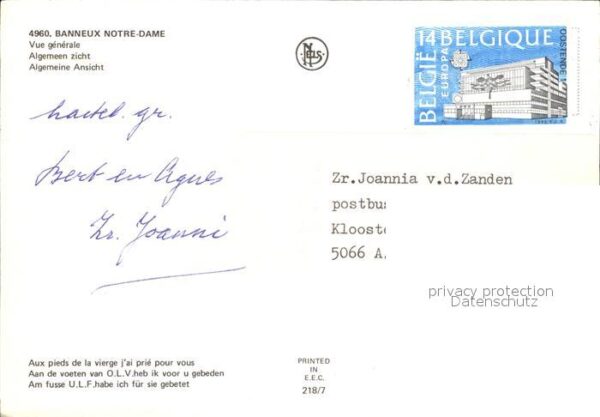 4960. BANNEUX NOTRE-DAME
Vue générale
Algemeen zicht
Algemeine Ansicht
14 BELGIQUE
BELGIË
EUROPA
OOSTENDE
hartel. gr.
Bert en Agnes
Zr. Joanni
Zr.Joannia v.d.Zanden
postbus
Klooste
5066 A.
privacy protection
Datenschutz
Aux pieds de la vierge j'ai prié pour vous
Aan de voeten van O.L.V.heb ik voor u gebeden
Am fusse U.L.F.habe ich für sie gebetet
PRINTED
IN
E.E.C.
218/7